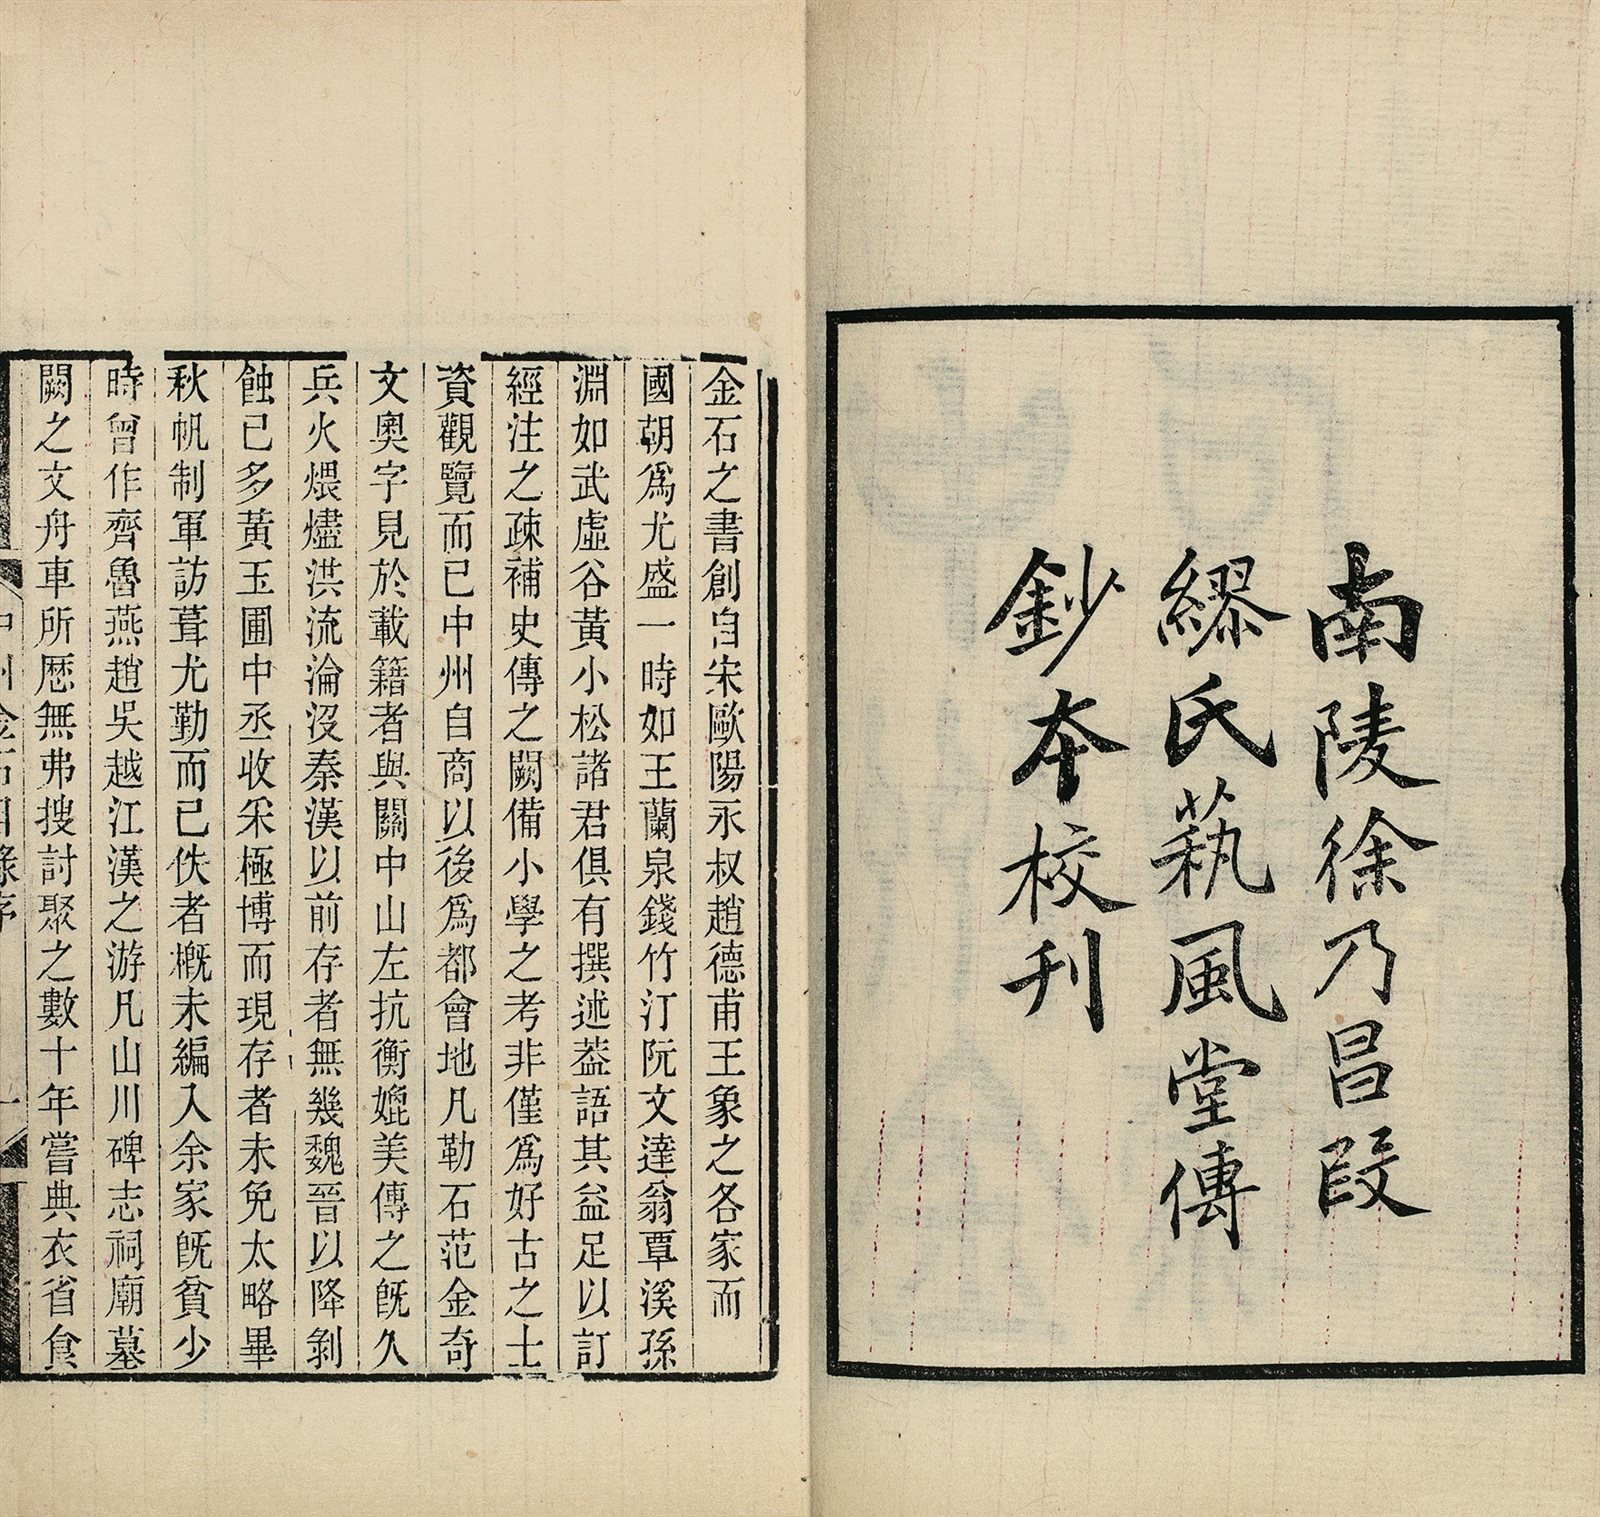 南陵徐乃昌叚
繆氏蓺風堂傳
鈔本校刊
金石之書創自宋歐陽永叔趙德甫王象之各家而
國朝爲尤盛一時如王蘭泉錢竹汀阮文達翁覃溪孫
淵如武虛谷黃小松諸君俱有撰述葢語其益足以訂
經注之疎補史傳之闕備小學之考非僅爲好古之士
資觀覽而已中州自商以後爲都會地凡勒石范金奇
文奧字見於載籍者與關中山左抗衡媲美傳之旣久
兵火煨燼洪流淪沒秦漢以前存者無幾魏晉以降剝
蝕已多黃玉圃中丞收采極博而現存者未免太略畢
秋帆制軍訪葺尤勤而已佚者槪未編入余家旣貧少
時曾作齊魯燕趙吳越江漢之游凡山川碑志祠廟墓
闕之文舟車所歷無弗搜討聚之數十年嘗典衣省食
中州金石目錄序
一